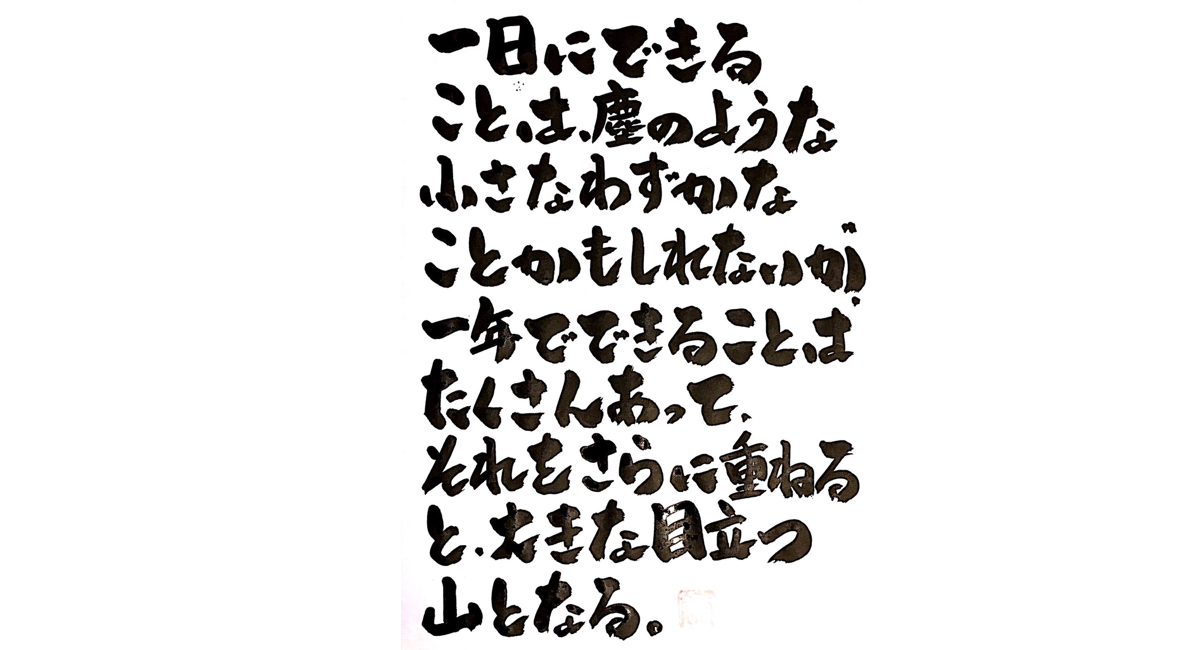 一日にできる
ことは、塵のような
小さなわずかな
ことかもしれないが
一年でできることは
たくさんあって、
それをさらに重ねる
と、大きな目立つ
山となる。